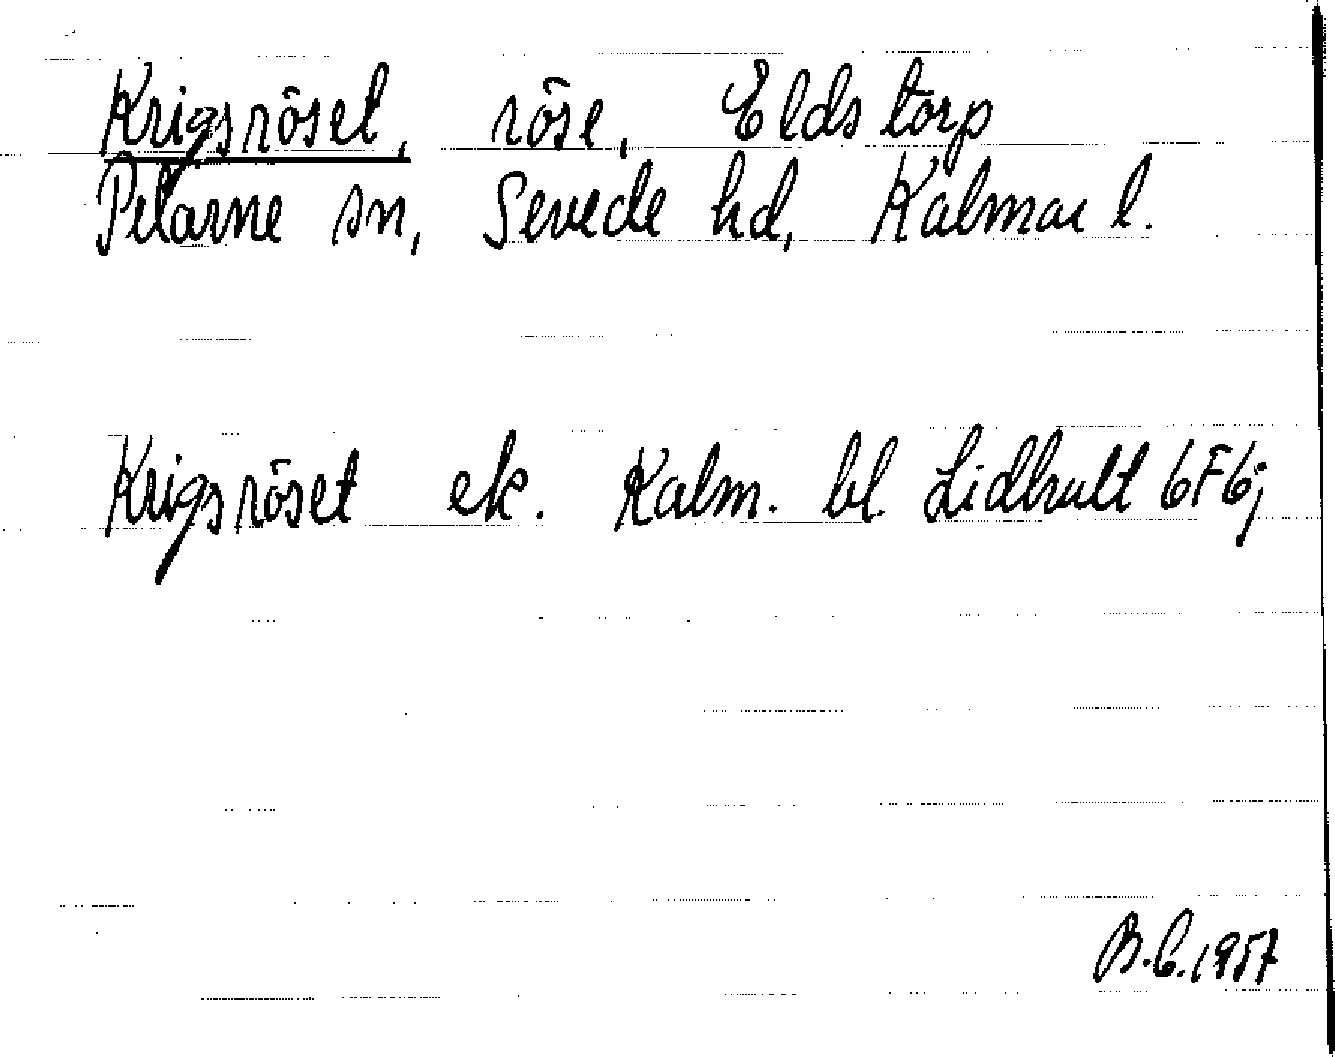 Krigsröset, röse, Eldstorp
Pelarne sn, Sevede hd, Kalmar l.
Krigsröset ek. Kalm. bl. Lidhult 6F6j
B.E. 1957